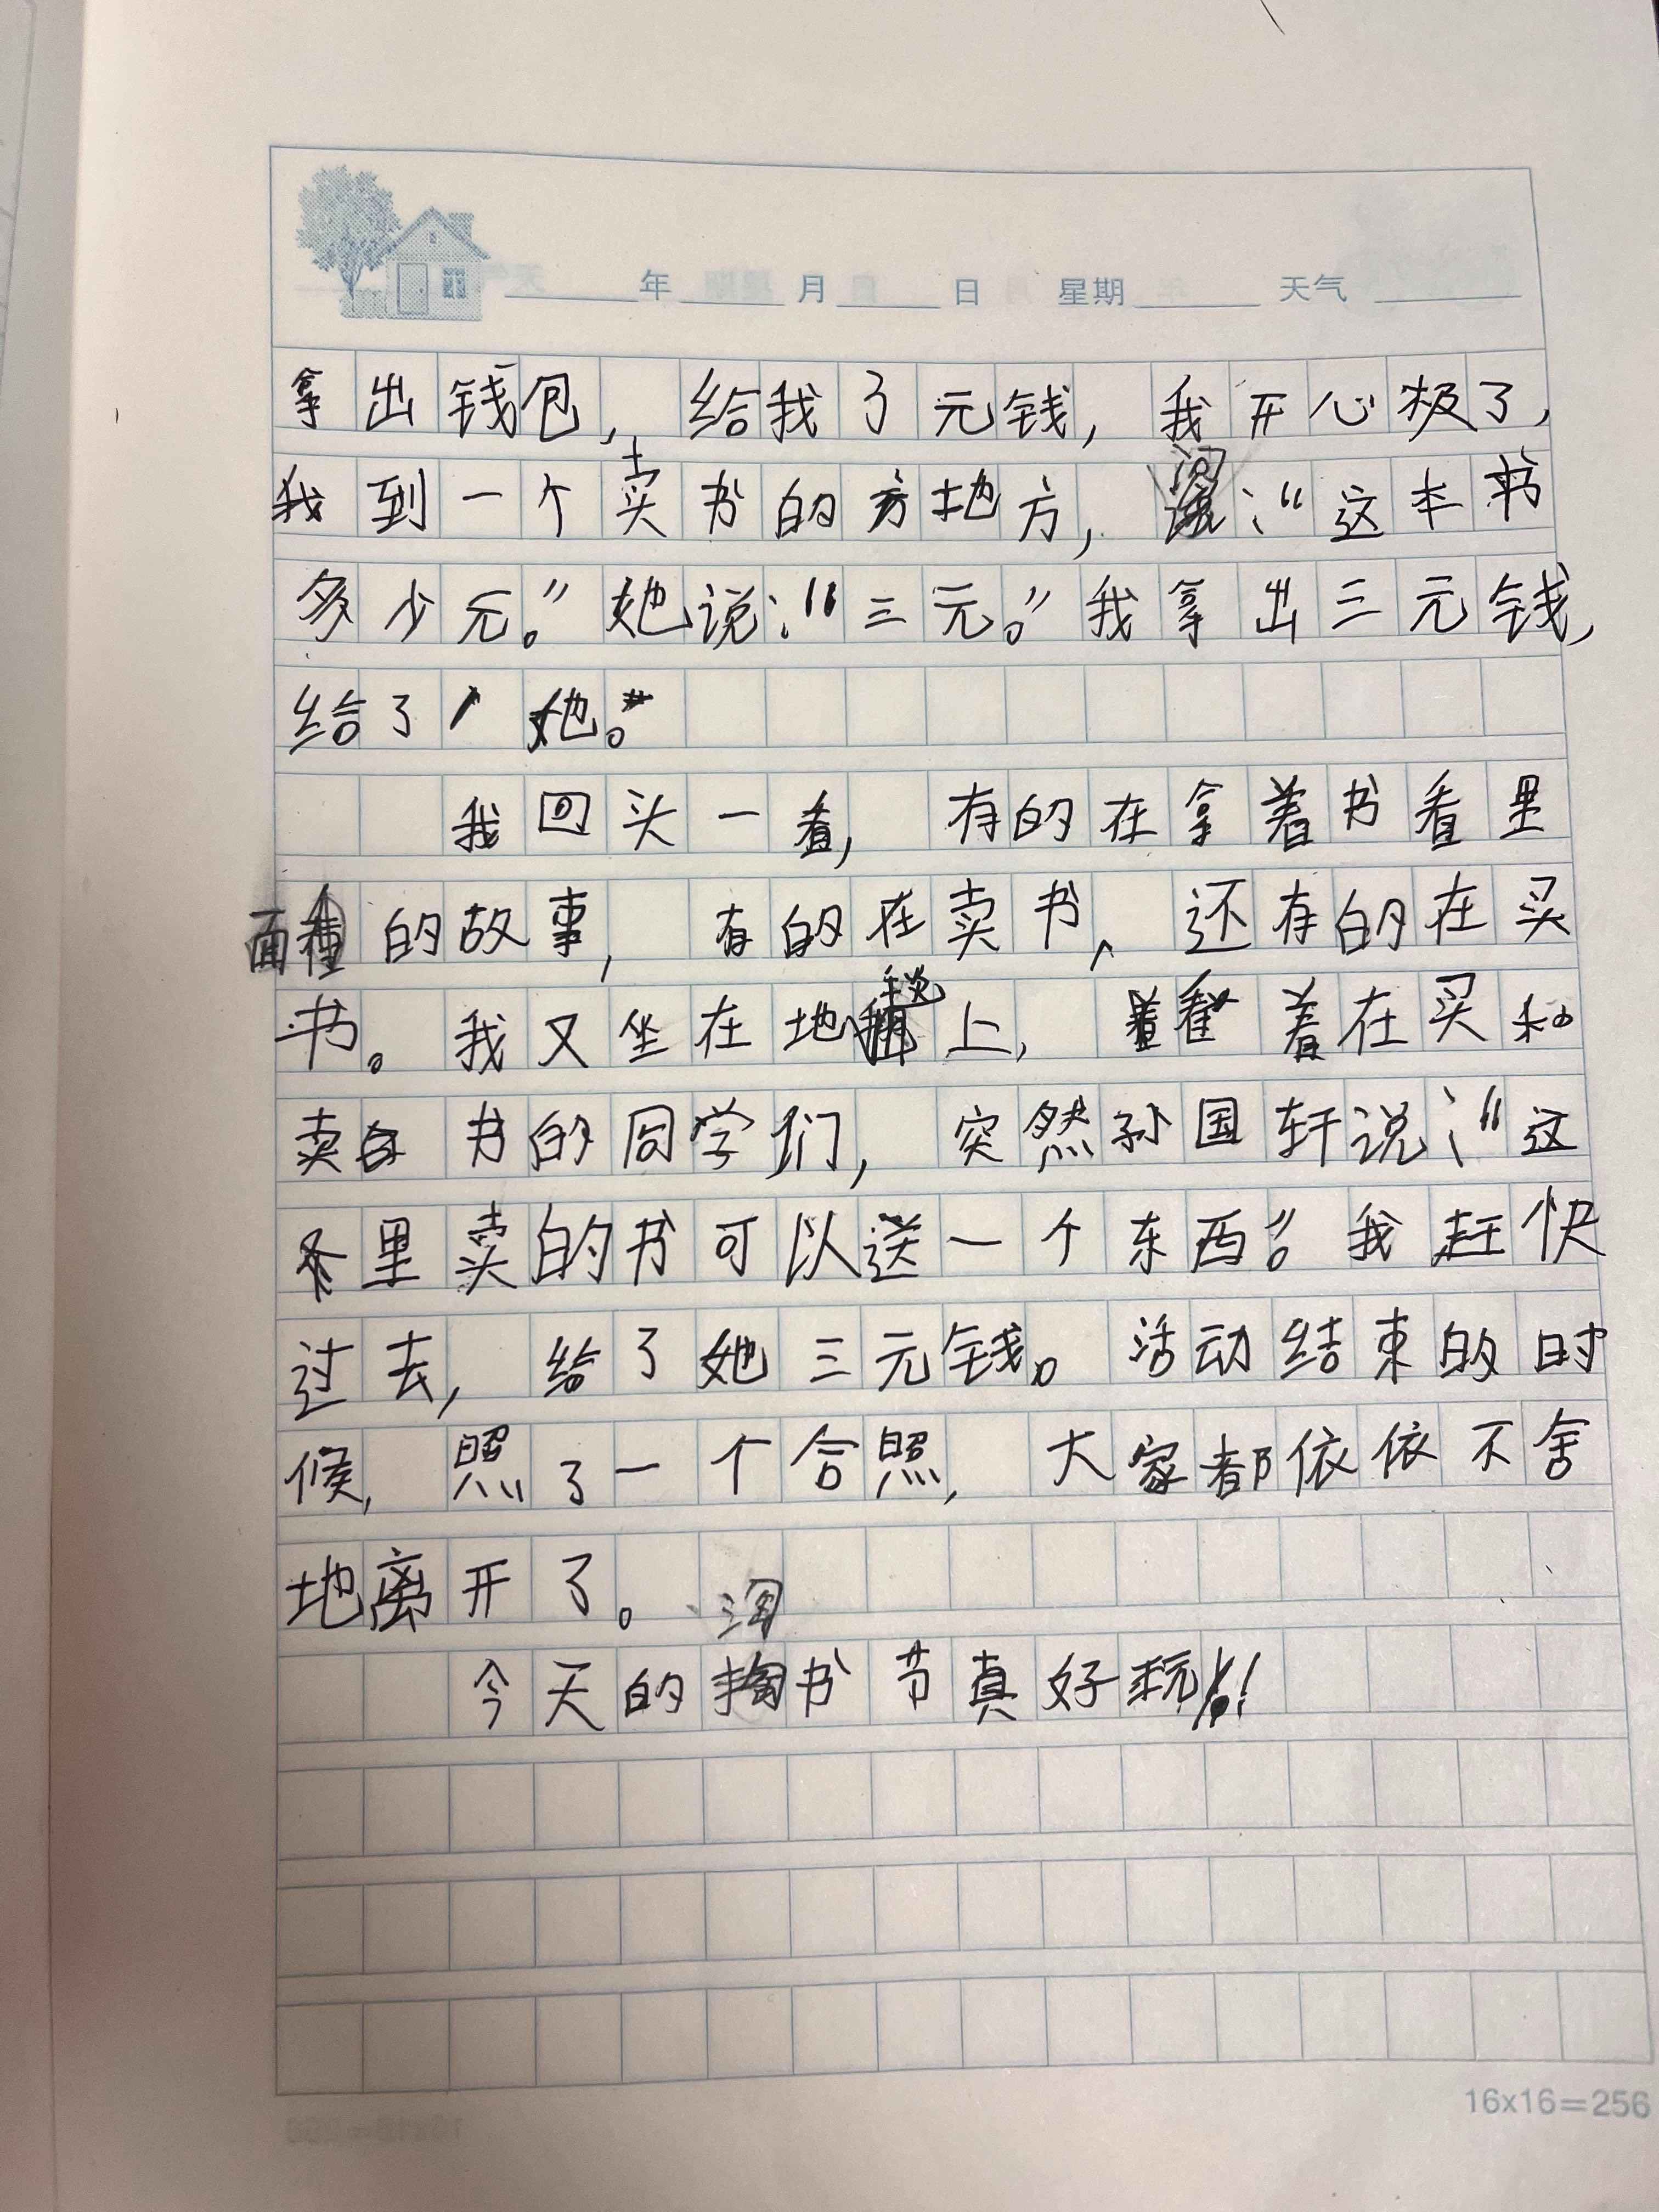 年 月 日 星期 天气
拿出钱包，给我了元钱，我开心极了，
我到一个卖书的地方，问：“这本书
多少元。”她说：“三元。”我拿出三元钱，
给了她。
我回头一看，有的在拿着书看里
面的故事，有的在卖书，还有的在买
书。我又坐在地毯上，看着在买和
卖书的同学们，突然孙国轩说：“这
里卖的书可以送一个东西”。我赶快
过去，给了她三元钱。活动结束的时
候，照了一个合照，大家都依依不舍
地离开了。
今天的淘书节真好玩！
16x16=256